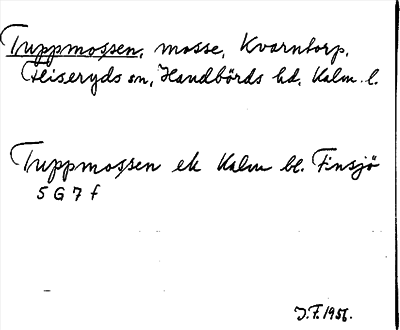 Tuppmossen, mosse, Kvarntorp,
Fliseryds sn, Handbörds hd, Kalm. l.
Tuppmossen ek Kalm bl. Finsjö
5 G 7 f
J.F. 1956.